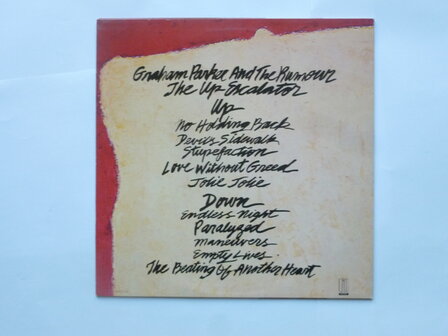 Graham Parker And The Rumour
The Up Escalator
Up
No Holding Back
Devils Sidewalk
Stupefaction
Love Without Greed
Jolie Jolie
Down
Endless Night
Paralyzed
Maneuvers
Empty Lives.
The Beating Of Another Heart